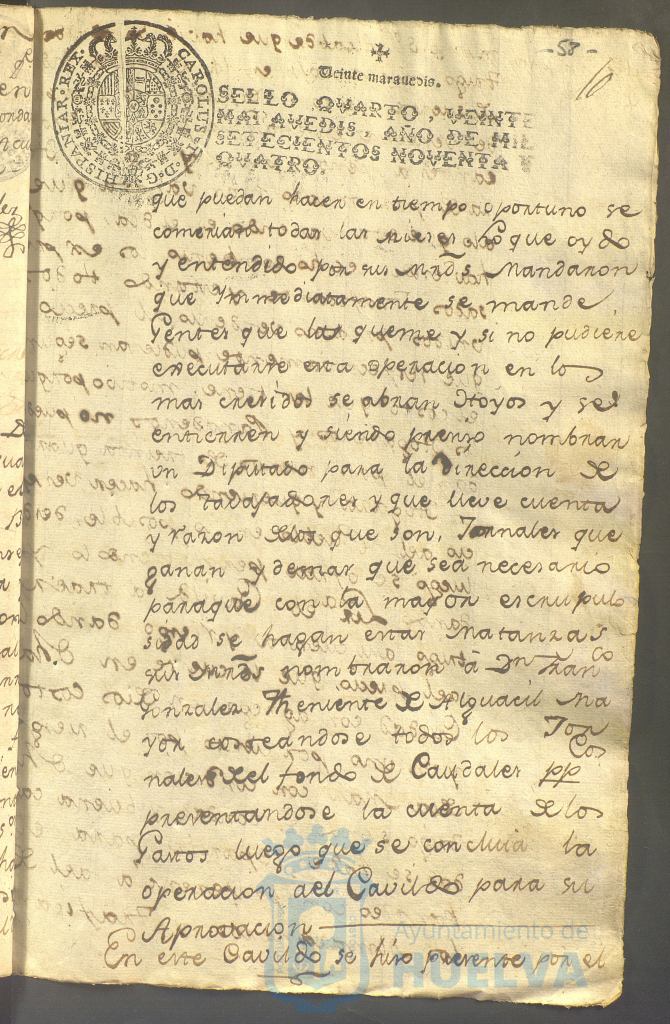 - 58 -
10
CAROLUS IV D. G. HISPANIAR. REX.
Veinte maravedis.
SELLO QUARTO, VEINTE
MARAVEDIS, AÑO DE MIL
SETECIENTOS NOVENTA Y
QUATRO.
que puedan hacer en tiempo oportuno se
comerian todas las mieses. Lo que oydo
y entendido por sus Mrds. Mandaron
que Ymmediatamente se mande
Gentes que las queme y si no pudiere
executarse esta operacion en los
mas crecidos se abran Hoyos y se
entierren y siendo preciso nombrar
un Diputado para la Direccion de
los trabajadores y que lleve cuenta
y razon de los que son, Jornales que
ganan y demas que sea necesario
paraque con la mayor escrupulo
sidad se hagan estas Matanzas
sus mrds nombraron à Dn. Franco
Gonzalez Theniente de Alguacil Ma
yor costeandose todos los Jor
nales del fondo de Caudales ppcos
presentandose la cuenta de los
Gastos luego que se concluia la
operacion ael Cavildo para su
Aprovacion
En este Cavildo se hizo presente por el
Ayuntamiento de
HUELVA